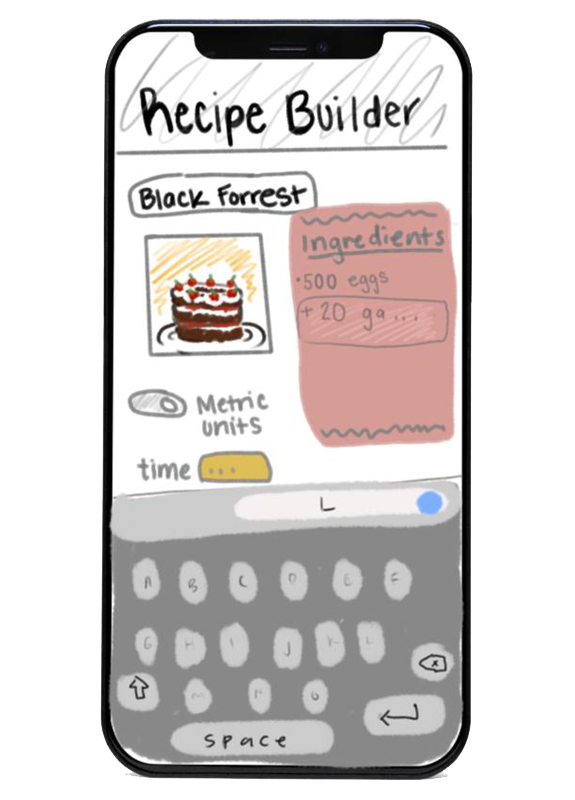 Recipe Builder
Black Forrest
Ingredients
•500 eggs
+20 ga...
Metric
units
time ...
L
A B C D E F
G H I J K L
M N O
space